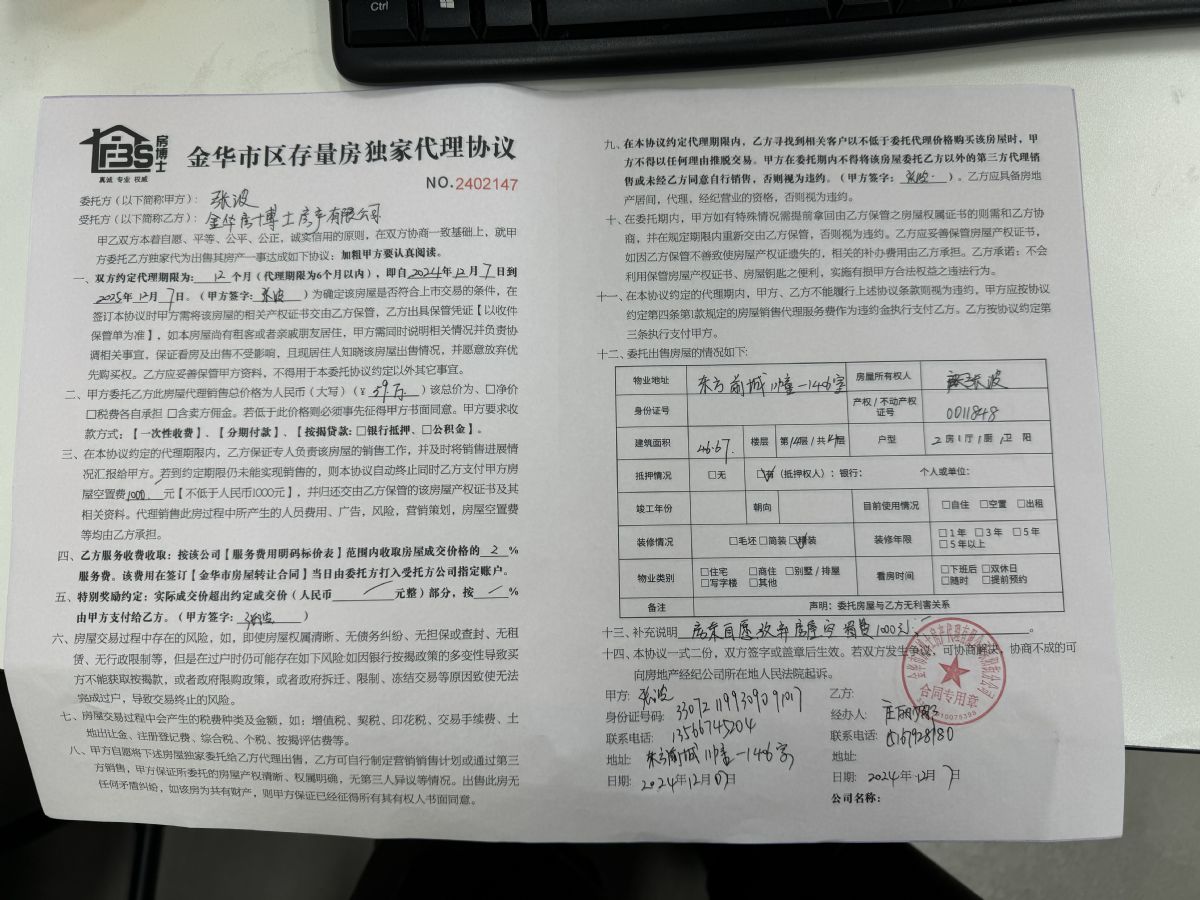 Ctrl
FBS
房博士
真诚 专业 权威
金华市区存量房独家代理协议
NO.2402147
委托方(以下简称甲方): 张波
受托方(以下简称乙方): 金华房博士房产有限公司
甲乙双方本着自愿、平等、公平、公正,诚实信用的原则,在双方协商一致基础上,就甲
方委托乙方独家代为出售其房产一事达成如下协议:加粗甲方要认真阅读。
一、双方约定代理期限为: 12 个月(代理期限为6个月以内),即自2024年12月7日到
2025年12月7日。(甲方签字: 张波 )为确定该房屋是否符合上市交易的条件,在
签订本协议时甲方需将该房屋的相关产权证书交由乙方保管,乙方出具保管凭证【以收件
保管单为准】,如本房屋尚有租客或者亲戚朋友居住,甲方需同时说明相关情况并负责协
调相关事宜,保证看房及出售不受影响,且现居住人知晓该房屋出售情况,并愿意放弃优
先购买权。乙方应妥善保管甲方资料,不得用于本委托协议约定以外其它事宜。
二、甲方委托乙方此房屋代理销售总价格为人民币(大写)(¥ 59万 )该总价为、□净价
□税费各自承担 □含卖方佣金。若低于此价格则必须事先征得甲方书面同意。甲方要求收
款方式:【一次性收费】、【分期付款】、【按揭贷款:□银行抵押、□公积金】。
三、在本协议约定的代理期限内,乙方保证专人负责该房屋的销售工作,并及时将销售进展情
况汇报给甲方。若到约定期限仍未能实现销售的,则本协议自动终止同时乙方支付甲方房
屋空置费1000元【不低于人民币1000元】,并归还交由乙方保管的该房屋产权证书及其
相关资料。代理销售此房过程中所产生的人员费用、广告,风险,营销策划,房屋空置费
等均由乙方承担。
四、乙方服务收费收取:按该公司【服务费用明码标价表】范围内收取房屋成交价格的 2 %
服务费。该费用在签订【金华市房屋转让合同】当日由委托方打入受托方公司指定账户。
五、特别奖励约定:实际成交价超出约定成交价(人民币 / 元整)部分,按 / %
由甲方支付给乙方。(甲方签字: 张波 )
六、房屋交易过程中存在的风险,如,即使房屋权属清晰、无债务纠纷、无担保或查封、无租
赁、无行政限制等,但是在过户时仍可能存在如下风险:如因银行按揭政策的多变性导致买
方不能获取按揭款,或者政府限购政策,或者政府拆迁、限制、冻结交易等原因致使无法
完成过户,导致交易终止的风险。
七、房屋交易过程中会产生的税费种类及金额,如:增值税、契税、印花税、交易手续费、土
地出让金、注册登记费、综合税、个税、按揭评估费等。
八、甲方自愿将下述房屋独家委托给乙方代理出售,乙方可自行制定营销销售计划或通过第三
方销售,甲方保证所委托的房屋产权清晰、权属明确,无第三人异议等情况。出售此房无
任何矛盾纠纷,如该房为共有财产,则甲方保证已经征得所有其有权人书面同意。
九、在本协议约定代理期限内,乙方寻找到相关客户以不低于委托代理价格购买该房屋时,甲
方不得以任何理由推脱交易。甲方在委托期内不得将该房屋委托乙方以外的第三方代理销
售或未经乙方同意自行销售,否则视为违约。(甲方签字: 张波 )。乙方应具备房地
产居间,代理,经纪营业的资格,否则视为违约。
十、在委托期内,甲方如有特殊情况需提前拿回由乙方保管之房屋权属证书的则需和乙方协
商,并在规定期限内重新交由乙方保管,否则视为违约。乙方应妥善保管房屋产权证书,
如因乙方保管不善致使房屋产权证遗失的,相关的补办费用由乙方承担。乙方承诺:不会
利用保管房屋产权证书、房屋钥匙之便利,实施有损甲方合法权益之违法行为。
十一、在本协议约定的代理期内,甲方、乙方不能履行上述协议条款则视为违约,甲方应按协议
约定第四条第1款规定的房屋销售代理服务费作为违约金执行支付乙方。乙方按协议约定第
三条执行支付甲方。
十二、委托出售房屋的情况如下:
物业地址 东方前城11幢-1406室 房屋所有权人 张波
身份证号 产权/不动产权证号 0011848
建筑面积 46.67. 楼层 第14层/共 层 户型 2房1厅1厨1卫 阳
抵押情况 □无 □有(抵押权人):银行: 个人或单位:
竣工年份 朝向 目前使用情况 □自住 □空置 □出租
装修情况 □毛坯 □简装 ☑精装 装修年限 □1年 □3年 □5年 □5年以上
物业类别 □住宅 □商住 □别墅/排屋 □写字楼 □其他 看房时间 □下班后 □双休日 □随时 □提前预约
备注 声明:委托房屋与乙方无利害关系
十三、补充说明 房东自愿放弃房屋空置费1000元。
十四、本协议一式二份,双方签字或盖章后生效。若双方发生争议,可协商解决,协商不成的可
向房地产经纪公司所在地人民法院起诉。
甲方: 张波
身份证号码: 330721199309091017
联系电话: 13566745204
地址: 东方前城11幢-1406室
日期: 2024年12月07日
乙方:
经办人:
联系电话:
地址:
日期: 2024年12月7日
公司名称:
合同专用章